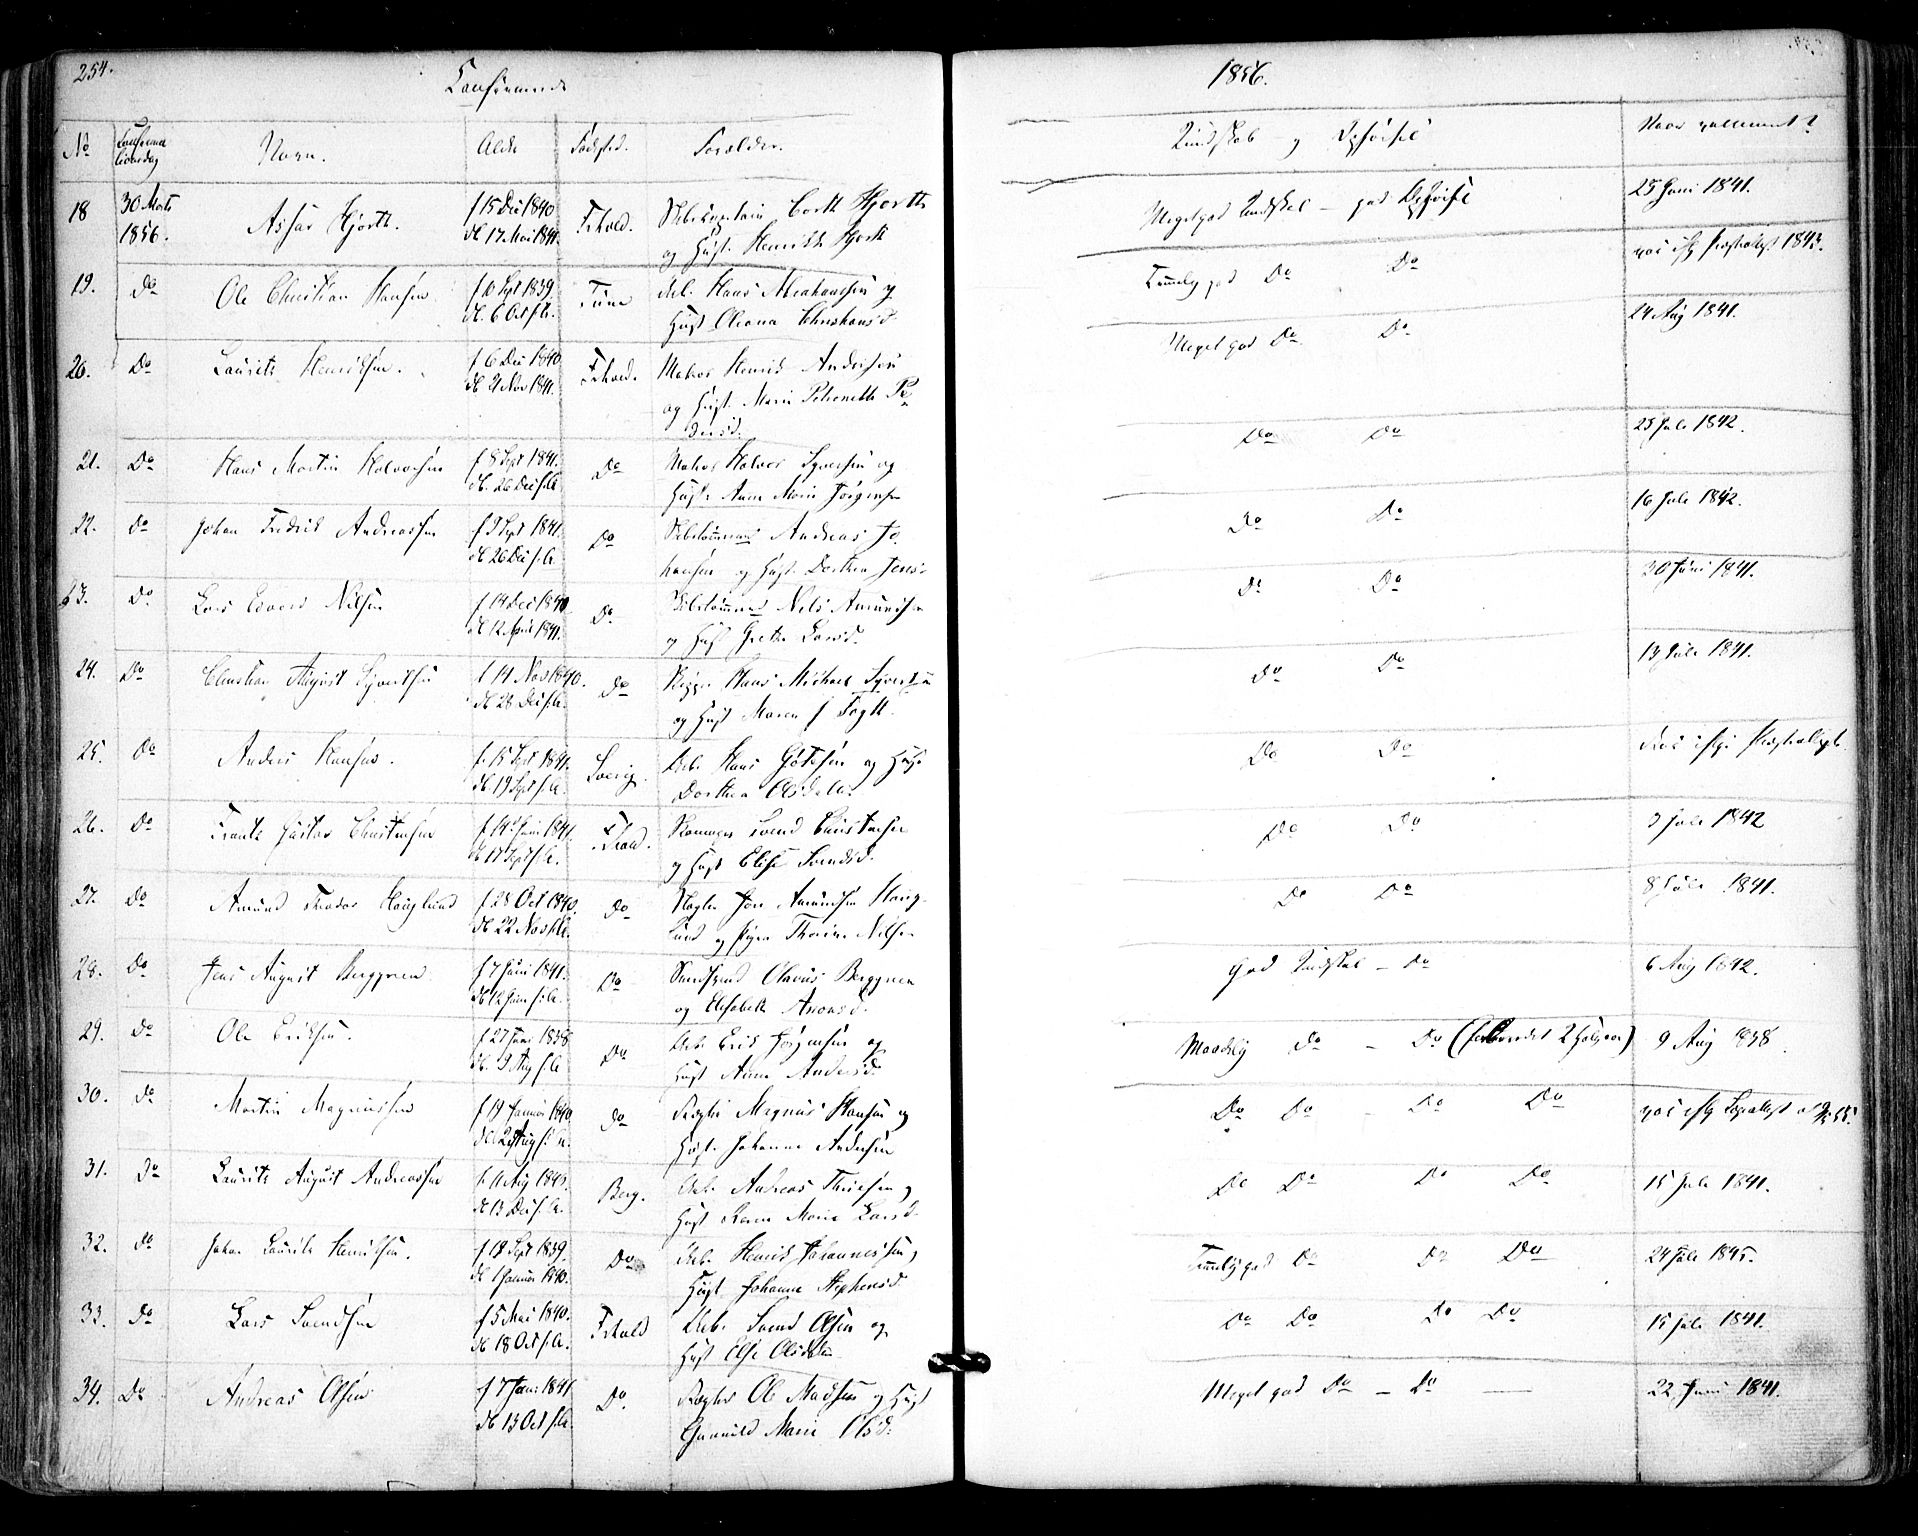 254.
Confirmerede
1856.
No
Confirma
tionsdag
Navn.
Alder
Fødested.
Forældre.
Kundskab og Opførsel
Naar vaccineret?
18
30 Marts
1856.
Assur Hjorth.
f 15 Dec 1840
db. 17 Mai 1841.
Frhald.
Skibskaptain Corth Hjorth
og Hust. Henrikke Hjorth
Meget god Kundskab – god Opførsel
25 Juni 1841.
19.
Do
Ole Christian Hansen
f 10 Sept 1839.
db. 6 Oct s. A.
Tune
Arb. Hans Abrahamsen og
Hust Oleana Christiansd.
Temmelig god Do Do
1843.
20.
Do
Laurits Henriksen.
f 6 Dec 1840.
db 21 Nov 1841.
Frhald.
Matros Henrik Andersen
og Hust. Marie Petronelle Pe
dersd.
Meget god Do Do
24 Aug 1841.
21.
Do
Hans Martin Halvorsen
f 8 Sept 1841.
db. 26 Dec s. A.
Do
Matros Halvor Syversen og
Hust. Anne Marie Jørgensen
Do Do
25 Juli 1842.
22.
Do
Johan Fredrik Andreassen
f 9 Sept 1841.
db 26 Dec s. A.
Do
Skibstømmermand Andreas Jo
hansen og Hust. Dorthea Jensd.
Do Do
16 Juli 1842.
23.
Do
Lars Edvard Nilsen
f 14 Dec 1840.
db 12 April 1841.
Do.
Skibstømmermand Nils Amundsen
og Hust Grethe Larsd.
Do Do
30 Juni 1841.
24.
Do
Christian August Syvertsen
f 14 Nov 1840.
db 28 Dec s. A.
Do
Skipper Hans Michael Syvertsen
og Hust Maren f. Fogth.
Do Do
13 Juli 1841.
25.
Do
Anders Hansen.
f. 15 Sept 1841.
db. 19 Sept s. A.
Sverig.
Arb. Hans Gotesen og Hust
Dorthea Olsdatter
Do Do
26.
Do
Frants Gustav Christensen
f. 14 Juni 1841.
db 17 Sept s. A.
Frhald.
Skomager Svend Christensen
og Hust Elise Svendsd.
Do Do
9 Juli 1842
27.
Do
Amund Theodor Hauglund
f. 28 Oct 1840.
db 22 Nov s. A.
Do
Jon Amundsen Haug-
lund og Pigen Thorine Nilsen
Do Do
8 Juli 1841.
28.
Do
Jens August Berggreen
f 7 Juni 1841.
db 12 Juni s. A.
Do
Olavus Berggreen
og Elisabeth Aronsd.
God Kundskab – Do
6 Aug 1842.
29.
Do
Ole Eriksen.
f. 27 Juni 1838
db. 9 Aug s. A
Do
Arb. Erik Jørgensen og
Hust Anne Andersd.
Maadelig Do – Do (forberedet 2 Halvaar)
9 Aug 1838.
30.
Do
Martin Magnussen
f 19 Januar 1840.
Do
Magnus Hansen og
Hust. Johanne Andersen
Do Do – Do Do
31.
Do
Laurits August Andreassen
f. 11 Aug 1840.
db 13 Dec s. A.
Berg.
Arb. Andreas og
Hust Karen Marie Larsd.
Do Do Do Do
15 Juli 1841.
32.
Do
Johan Laurits Henriksen.
f. 19 Sept 1839.
db 1 Januar 1840.
Do
Arb. Henrik Johannessen og
Hust. Johanne Stephensd.
Temmelig god Do Do Do
24 Juli 1845.
33.
Do
Lars Svendsen
f 5 Mai 1840.
db 18 Oct s. A.
Frhald
Arb. Svend Olsen og
Hust Else Olsdatter
Do Do Do Do
15 Juli 1841.
34.
Do
Andreas Olsen
f 7 Juni 1841
db 13 Oct s. A.
Do.
Ole Madsen og Hust
Gunnild Marie Olsd.
Meget god Do – Do —
22 Juni 1841.